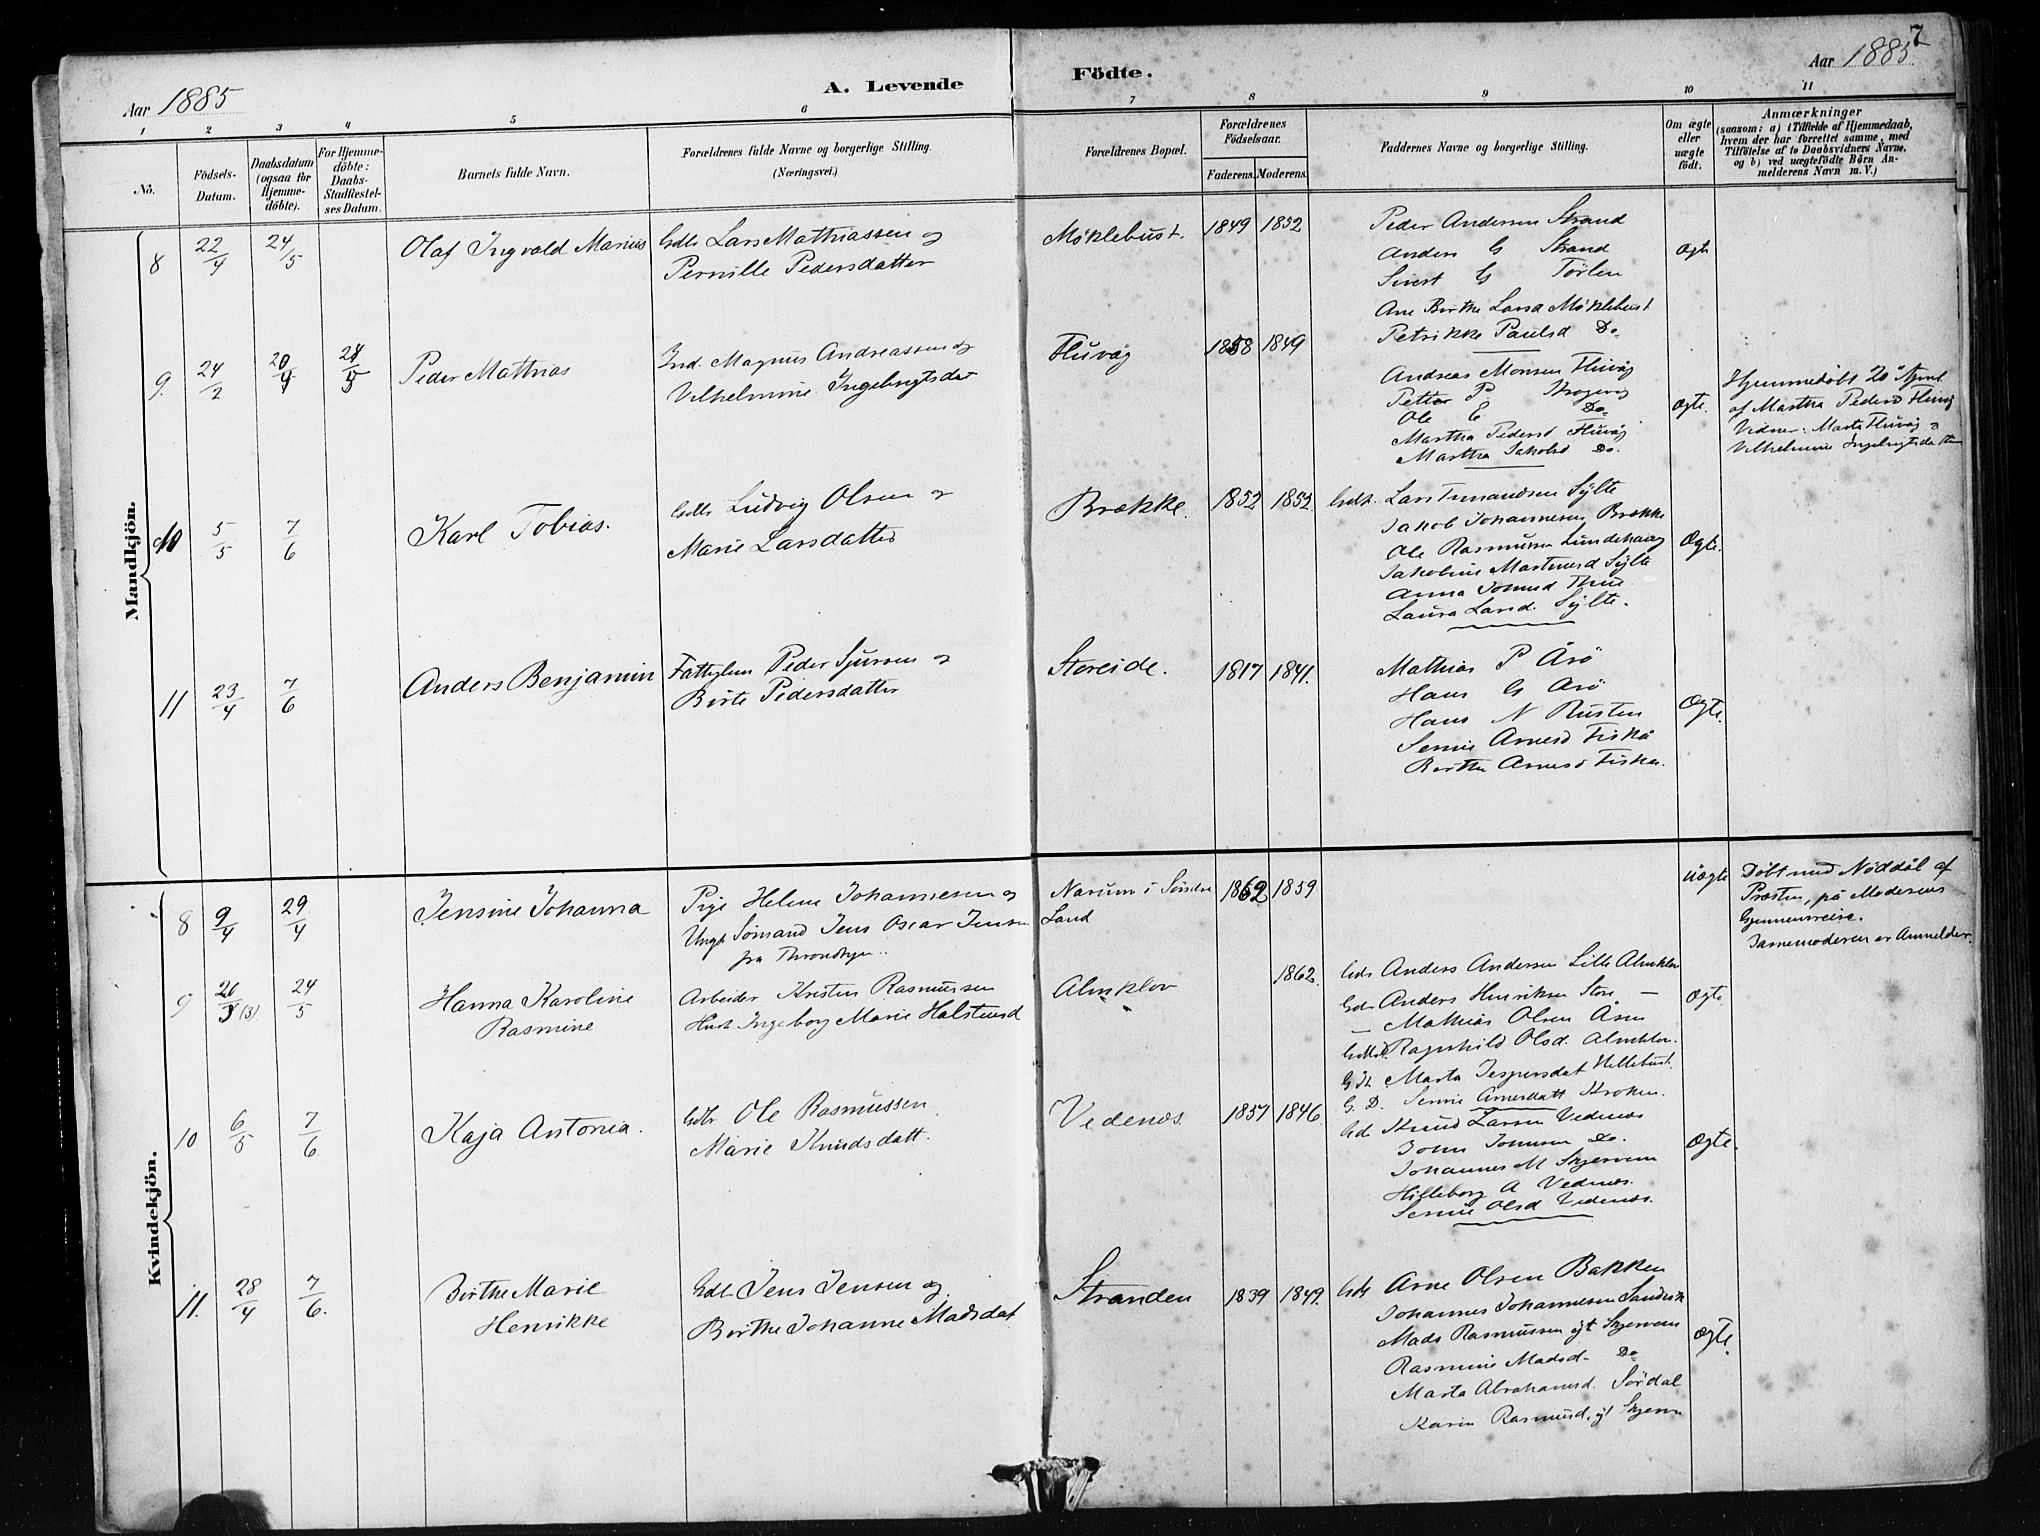 7
Aar 1885
A. Levende
Födte.
Aar 1885
1 2 3 4 5 6 7 8 9 10 11
No.
Födsels-
Datum.
Daabsdatum
(ogsaa for
Hjemme-
döbte).
For Hjemme-
döbte:
Daabs-
Stadfæstel-
ses Datum.
Barnets fulde Navn.
Forældrenes fulde Navne og borgerlige Stilling.
(Næringsvei.)
Forældrenes Bopæl.
Forældrenes
Födselsaar.
Faderens. Moderens.
Faddernes Navne og borgerlige Stilling.
Om ægte
eller
uægte
födt.
Anmærkninger
(saasom: a) i Tilfælde af Hjemmedaab,
hvem der har forrettet samme, med
Tilföielse af to Daabsvidners Navne,
og b) ved uægtefödte Börn An-
melderens Navn m. V.)
Mandkjön.
8 22/4 24/5 Olaf Ingvald Marius
Gdbr Lars Mathiassen og
Pernille Pedersdatter
Möklebust. 1849 1852
Peder Andersen Strand
Anders G Strand
Sivert G
Ane Birthe Larsd Möklebust
Petrikke Paulsd Do
Ægte
9. 24/2 20/4 24/5 Peder Mathias
Ind. Magnus Andreassen og
Vilhelmine Ingebrigtsdat
Fluvåg 1858 1849
Andreas Monsen Fluvåg
Petter P
Ole E Do
Martha Pedersd Fluvåg
Martha Jakobsd Do.
Ægte.
Hjemmedöbt 20 April
af Martha Pedersd Fluvåg
Vidner: Marte Fluvåg og
Vilhelmine Ingebrigtsdatter
10 5/5 7/6 Karl Tobias.
Gdbr Ludvig Olsen og
Marie Larsdatter
Brække 1852 1852
Lars Sylte
Jakob Johannesen Brække
Ole Rasmussen Lundehaug
Jakobine Martinusd Sylte
Anna
Laura Larsd. Sylte.
Ægte.
11 23/4 7/6 Anders Benjamin
Peder Sjursen og
Birte Pedersdatter
Storeide. 1817 1841.
Mathias P Årö
Hans G Årö
Hans N Rusten
Senie Arnesd Fiskå
Birthe Arnesd Fiskå.
Ægte.
Kvindekjön.
8 9/4 29/4 Jensine Johanna
Pige Helene Johannesen og
Ungk Sömand Jens Oscar Jensen
fra Throndhjem..
Narum i Söndre
Land
1862 1859
uægte
Döbt med Nöddåb af
Præsten, på Moderens
Gjennemreise.
Barnemoderen er Anmelder.
9 26/3 (3) 24/5 Hanna Karoline
Rasmine
Arbeider Kristen Rasmussen
Hust Ingeborg Marie Halstensd
Almklov 1862.
Gdr Anders Andersen Lille Almklov
Gdr Anders Henriksen Store —
— Mathias Olsen Åsen
Ragnhild Olsd. Almklov.
Marta Jespersdat Hellebust.
G. D. Senie Arnesdatt Kroken.
Ægte.
10 6/5 7/6. Kaja Antonia.
Gdbr Ole Rasmussen
Marie Knudsdatt.
Vedenæs 1857 1846.
Gdr Knud Larsen Vedenæs
John Johnsen Do.
Johannes M Skjervem
Hilleborg A Vedenæs.
Senie Olsd Vedenæs.
Ægte.
11. 28/4 7/6. Birthe Marie
Henrikke
Gdbr Jens Jensen og
Birthe Johanne Madsdat
Stranden 1839 1849.
Gdr Arne Olsen Bakken
Johannes Johannesen Sandvik
Mads Rasmussen ygt Skjervem
Rasmine Madsd. Do
Marta Abrahamsd. Sördal
Karin Rasmusd.
Ægte.